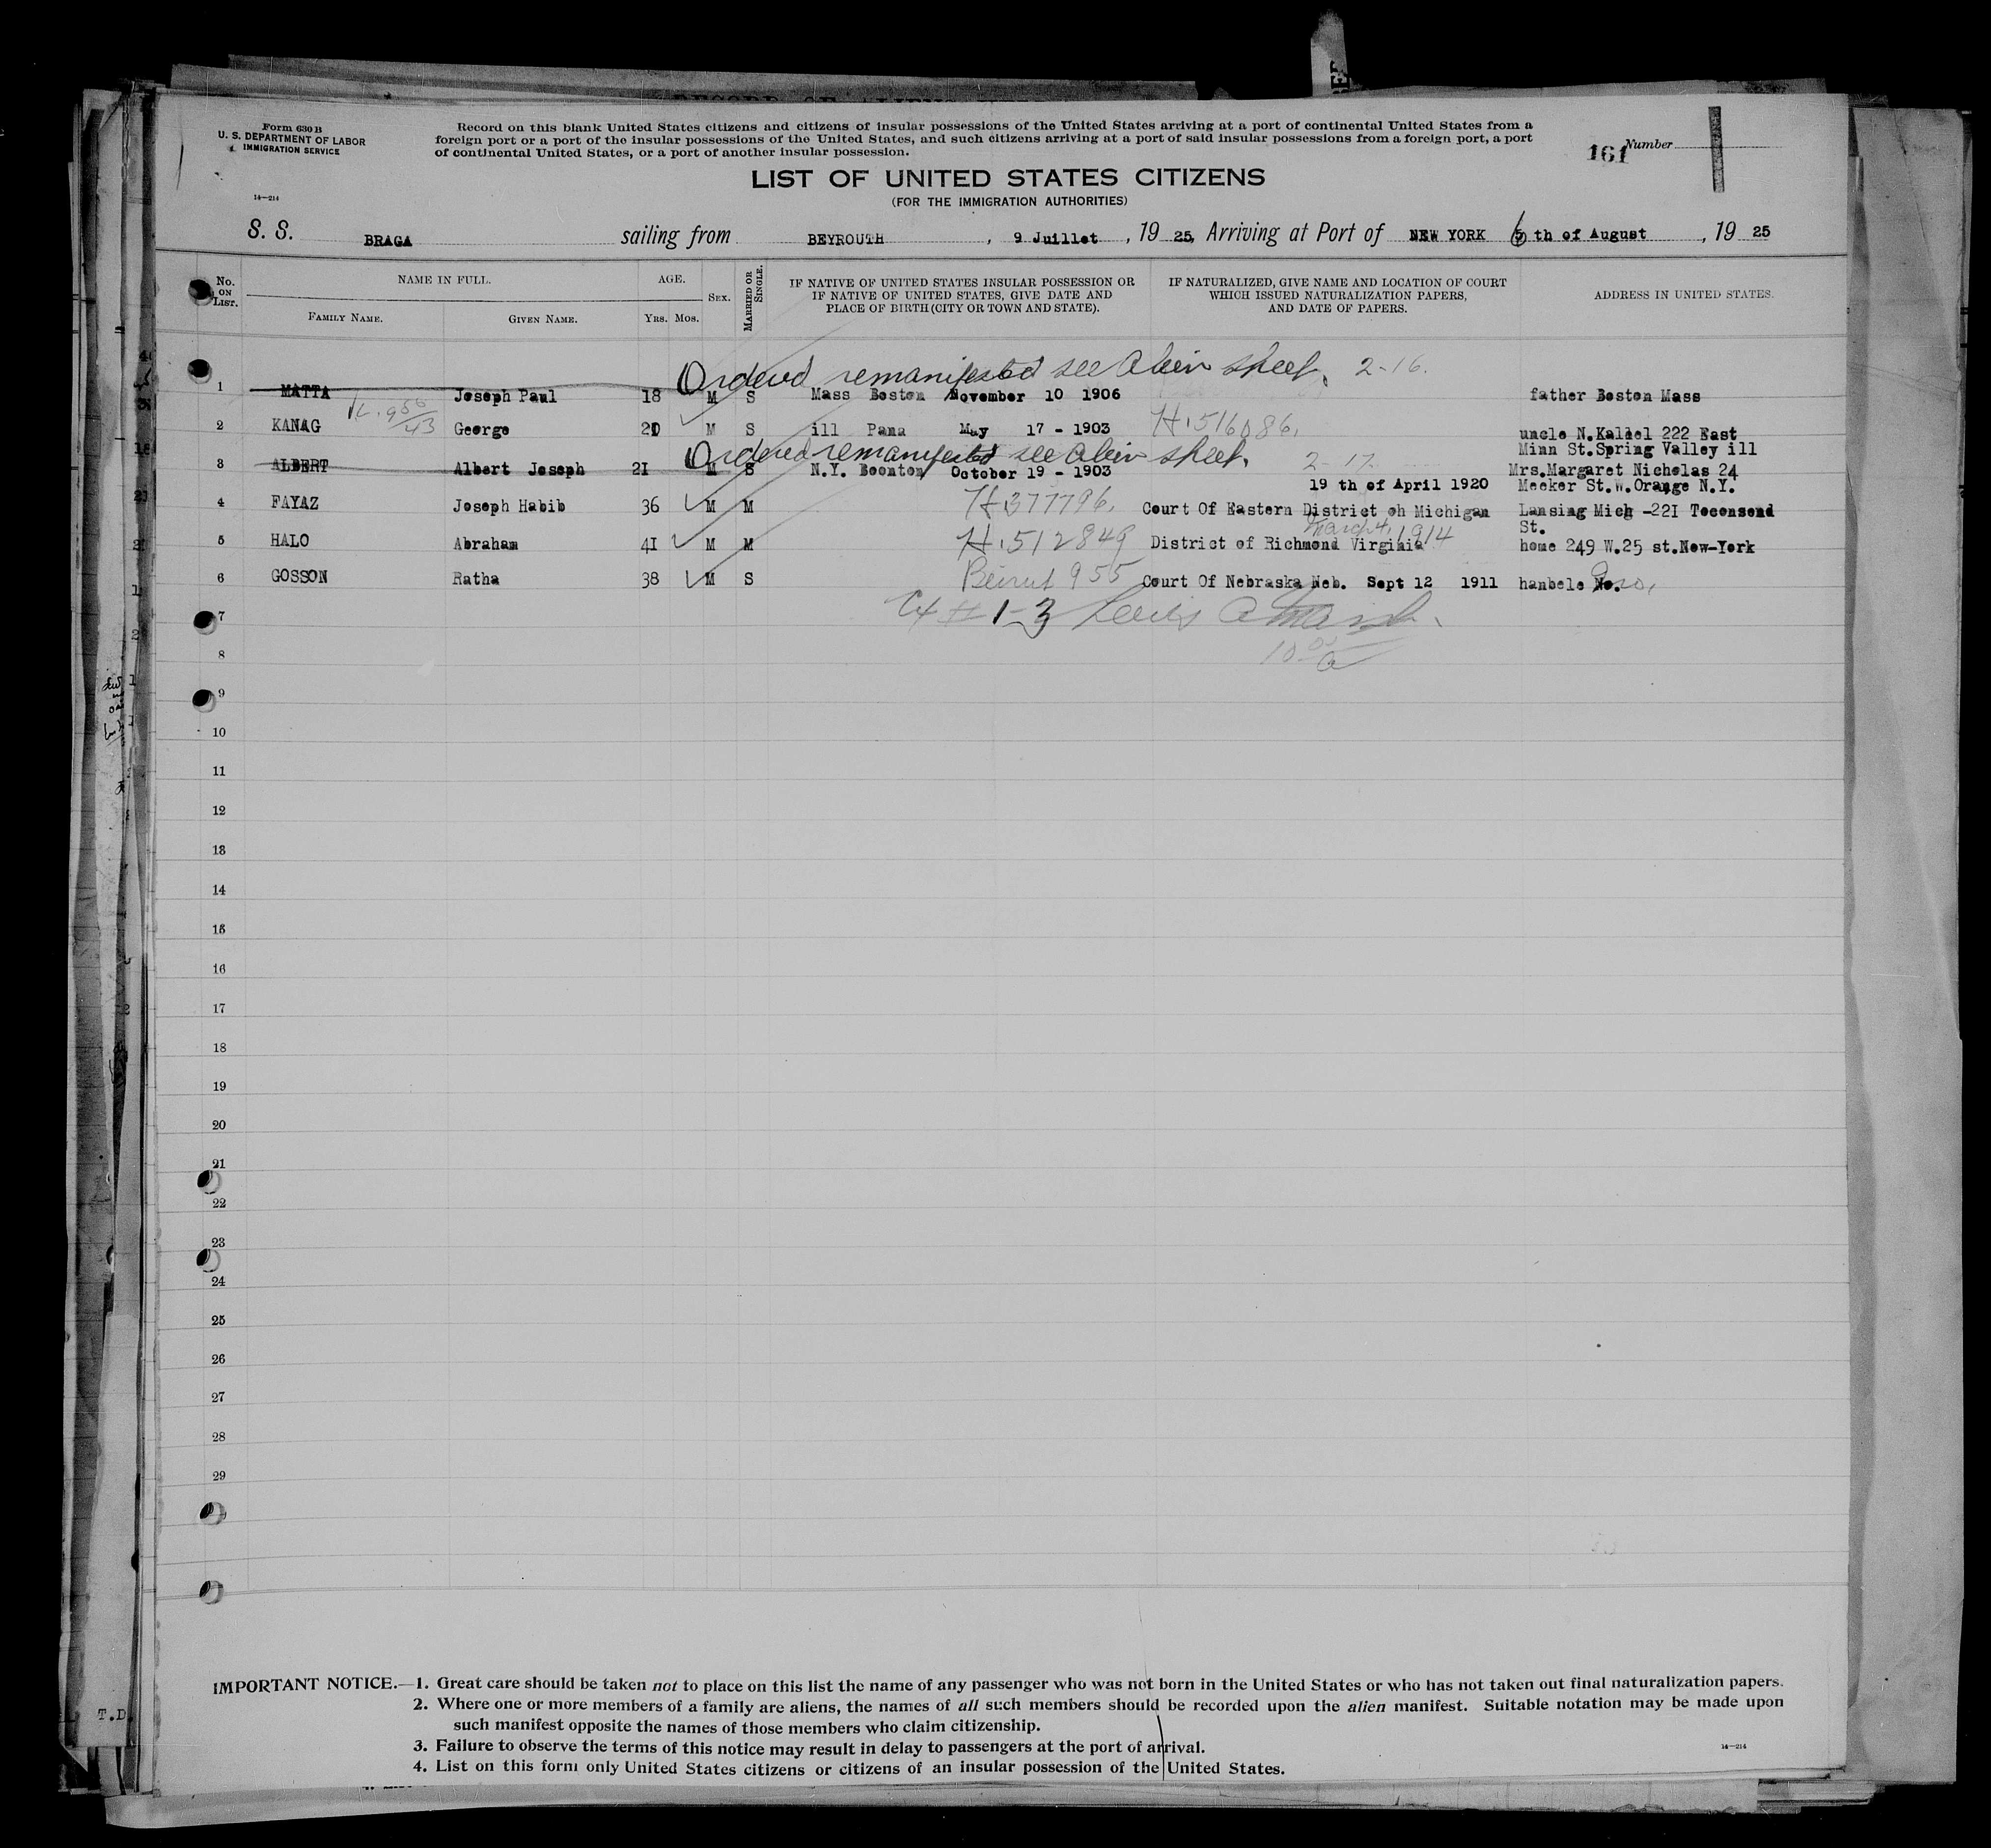 Form 630 B
U. S. DEPARTMENT OF LABOR
IMMIGRATION SERVICE
14—214
Record on this blank United States citizens and citizens of insular possessions of the United States arriving at a port of continental United States from a
foreign port or a port of the insular possessions of the United States, and such citizens arriving at a port of said insular possessions from a foreign port, a port
of continental United States, or a port of another insular possession.
161 Number
LIST OF UNITED STATES CITIZENS
(FOR THE IMMIGRATION AUTHORITIES)
S. S. BRAGA sailing from BEYROUTH, 9 Juillet, 19 25, Arriving at Port of NEW YORK th of August, 19 25
No. ON LIST.
NAME IN FULL.
FAMILY NAME. GIVEN NAME.
AGE.
YRS. MOS.
SEX.
MARRIED OR SINGLE.
IF NATIVE OF UNITED STATES INSULAR POSSESSION OR
IF NATIVE OF UNITED STATES, GIVE DATE AND
PLACE OF BIRTH (CITY OR TOWN AND STATE).
IF NATURALIZED, GIVE NAME AND LOCATION OF COURT
WHICH ISSUED NATURALIZATION PAPERS,
AND DATE OF PAPERS.
ADDRESS IN UNITED STATES.
Ordered remanifested see Alein sheet. 2-16.
1 MATTA Joseph Paul 18 M S Mass Boston November 10 1906 father Boston Mass
2 KANAG George M S ill Pana May 17 - 1903 H.516086. uncle N.Kallel 222 East
Minn St.Spring Valley ill
Ordered remanifested see Alein sheet. 2-17
3 ALBERT Albert Joseph 2I M S N.Y. Boonton October 19 - 1903 Mrs.Margaret Nicholas 24
19 th of April 1920 Meeker St.W.Orange N.Y.
4 FAYAZ Joseph Habib 36 M M H.377796. Court Of Eastern District oh Michigan Lansing Mich -22I Toconsend
St.
March 4, 1914
5 HALO Abraham 4I M M H.512849 District of Richmond Virginia home 249 W.25 st.New-York
6 GOSSON Ratha 38 M S Beirut 955 Court Of Nebraska Neb. Sept 12 1911 hanbele
7
8
9
10
11
12
13
14
15
16
17
18
19
20
21
22
23
24
25
26
27
28
29
IMPORTANT NOTICE.—1. Great care should be taken not to place on this list the name of any passenger who was not born in the United States or who has not taken out final naturalization papers.
2. Where one or more members of a family are aliens, the names of all such members should be recorded upon the alien manifest. Suitable notation may be made upon
such manifest opposite the names of those members who claim citizenship.
3. Failure to observe the terms of this notice may result in delay to passengers at the port of arrival.
4. List on this form only United States citizens or citizens of an insular possession of the United States.
14—214
T.D.